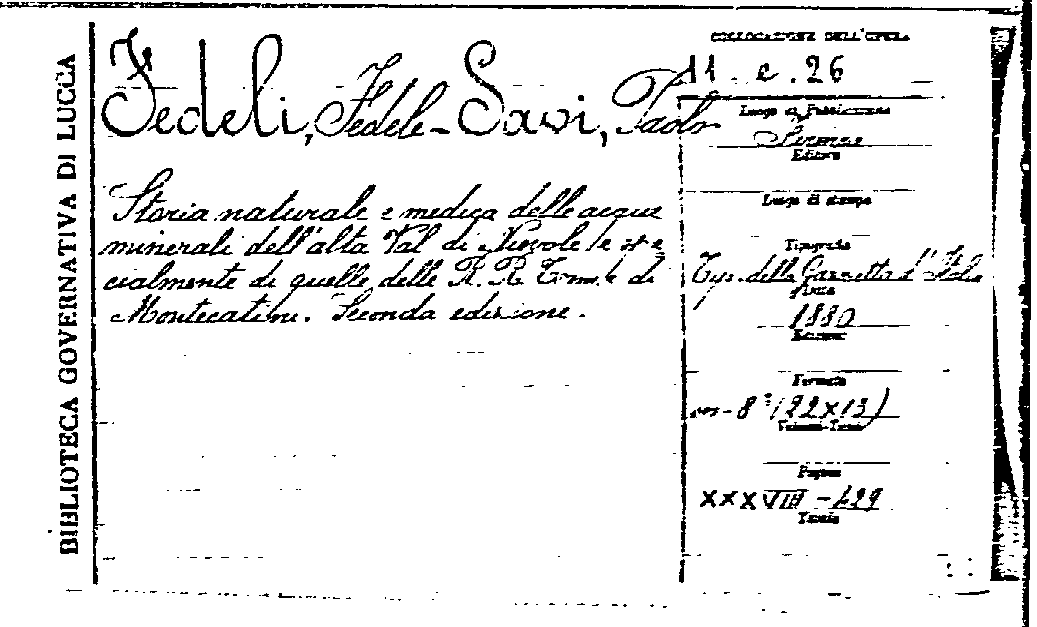 BIBLIOTECA GOVERNATIVA DI LUCCA
Fedeli, Fedele - Savi, Paolo
Storia naturale e medica delle acque
minerali dell'alta Val di Nievole e spe
cialmente di quelle delle R. R. Terme di
Montecatini. Seconda edizione.
COLLOCAZIONE DELL'OPERA
11. c. 26
Luogo di Pubblicazione
Firenze
Editore
Luogo di stampa
Tipografia
Typ. della Gazzetta d'Italia
Data
1880
Formato
in-8° (22x13)
Volumi-Tomi
Pagine
XXXVIII - 429
Tavole